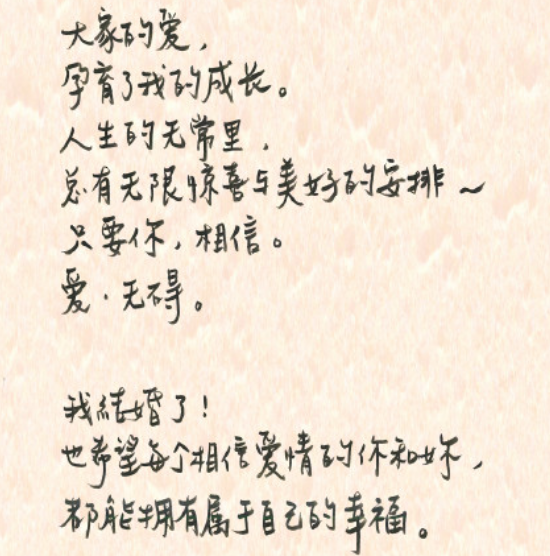 大家的爱，
孕育了我的成长。
人生的无常里，
总有无限惊喜与美好的安排～
只要你，相信。
爱·无碍。
我結婚了！
也希望每个相信爱情的你和妳，
都能拥有属于自己的幸福。